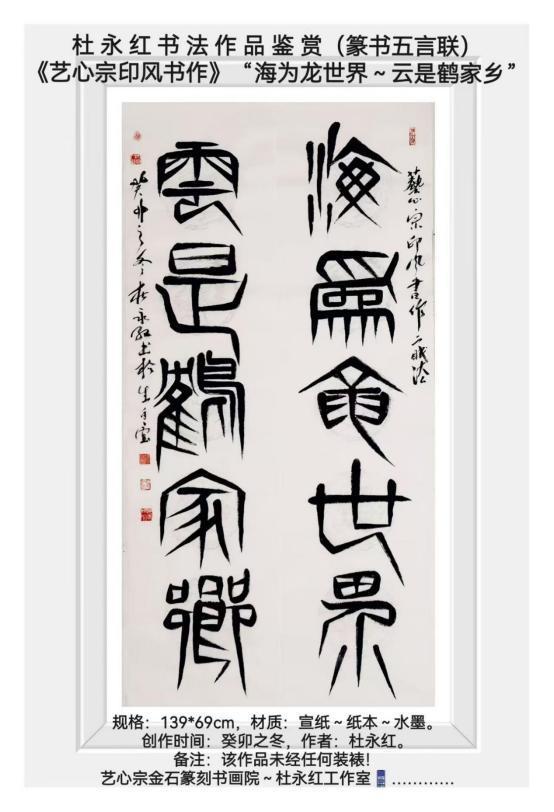 杜永红书法作品鉴赏（篆书五言联）
《艺心宗印风书作》“海为龙世界～云是鹤家乡”
海為龍世界
雲是鶴家鄉
藝心宗印風書作
癸卯之冬杜永紅書於
规格：139*69cm，材质：宣纸～纸本～水墨。
创作时间：癸卯之冬，作者：杜永红。
备注：该作品未经任何装裱！
艺心宗金石篆刻书画院～杜永红工作室…………